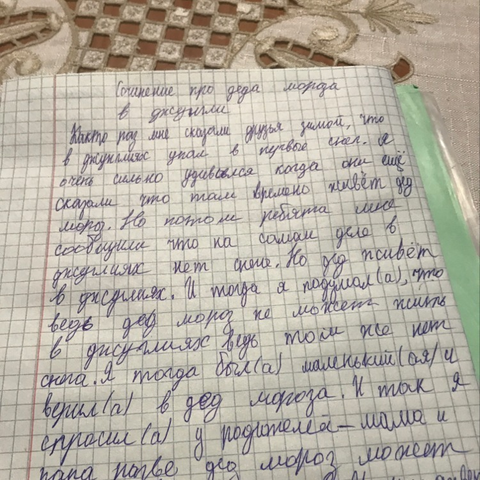 Сочинение про деда мороза
в джунгли
Както раз мне сказали друзья зимой, что
в джунглиях упал в первые снег. Я
очень сильно удивился когда они ещё
сказали что там времено живёт дед
мороз. Но потом ребята мне
сообщили что на самом деле в
джунглиях нет снега. Но дед живёт
в джунглиях. И тогда я подумал(а), что
ведь дед мороз не может жить
в джунглиях ведь том же нет
снега. Я тогда был(а) маленький(ая) и
верил(а) в дед мороза. И так я
спросил(а) у родителей-мама и
папа дед мороз может